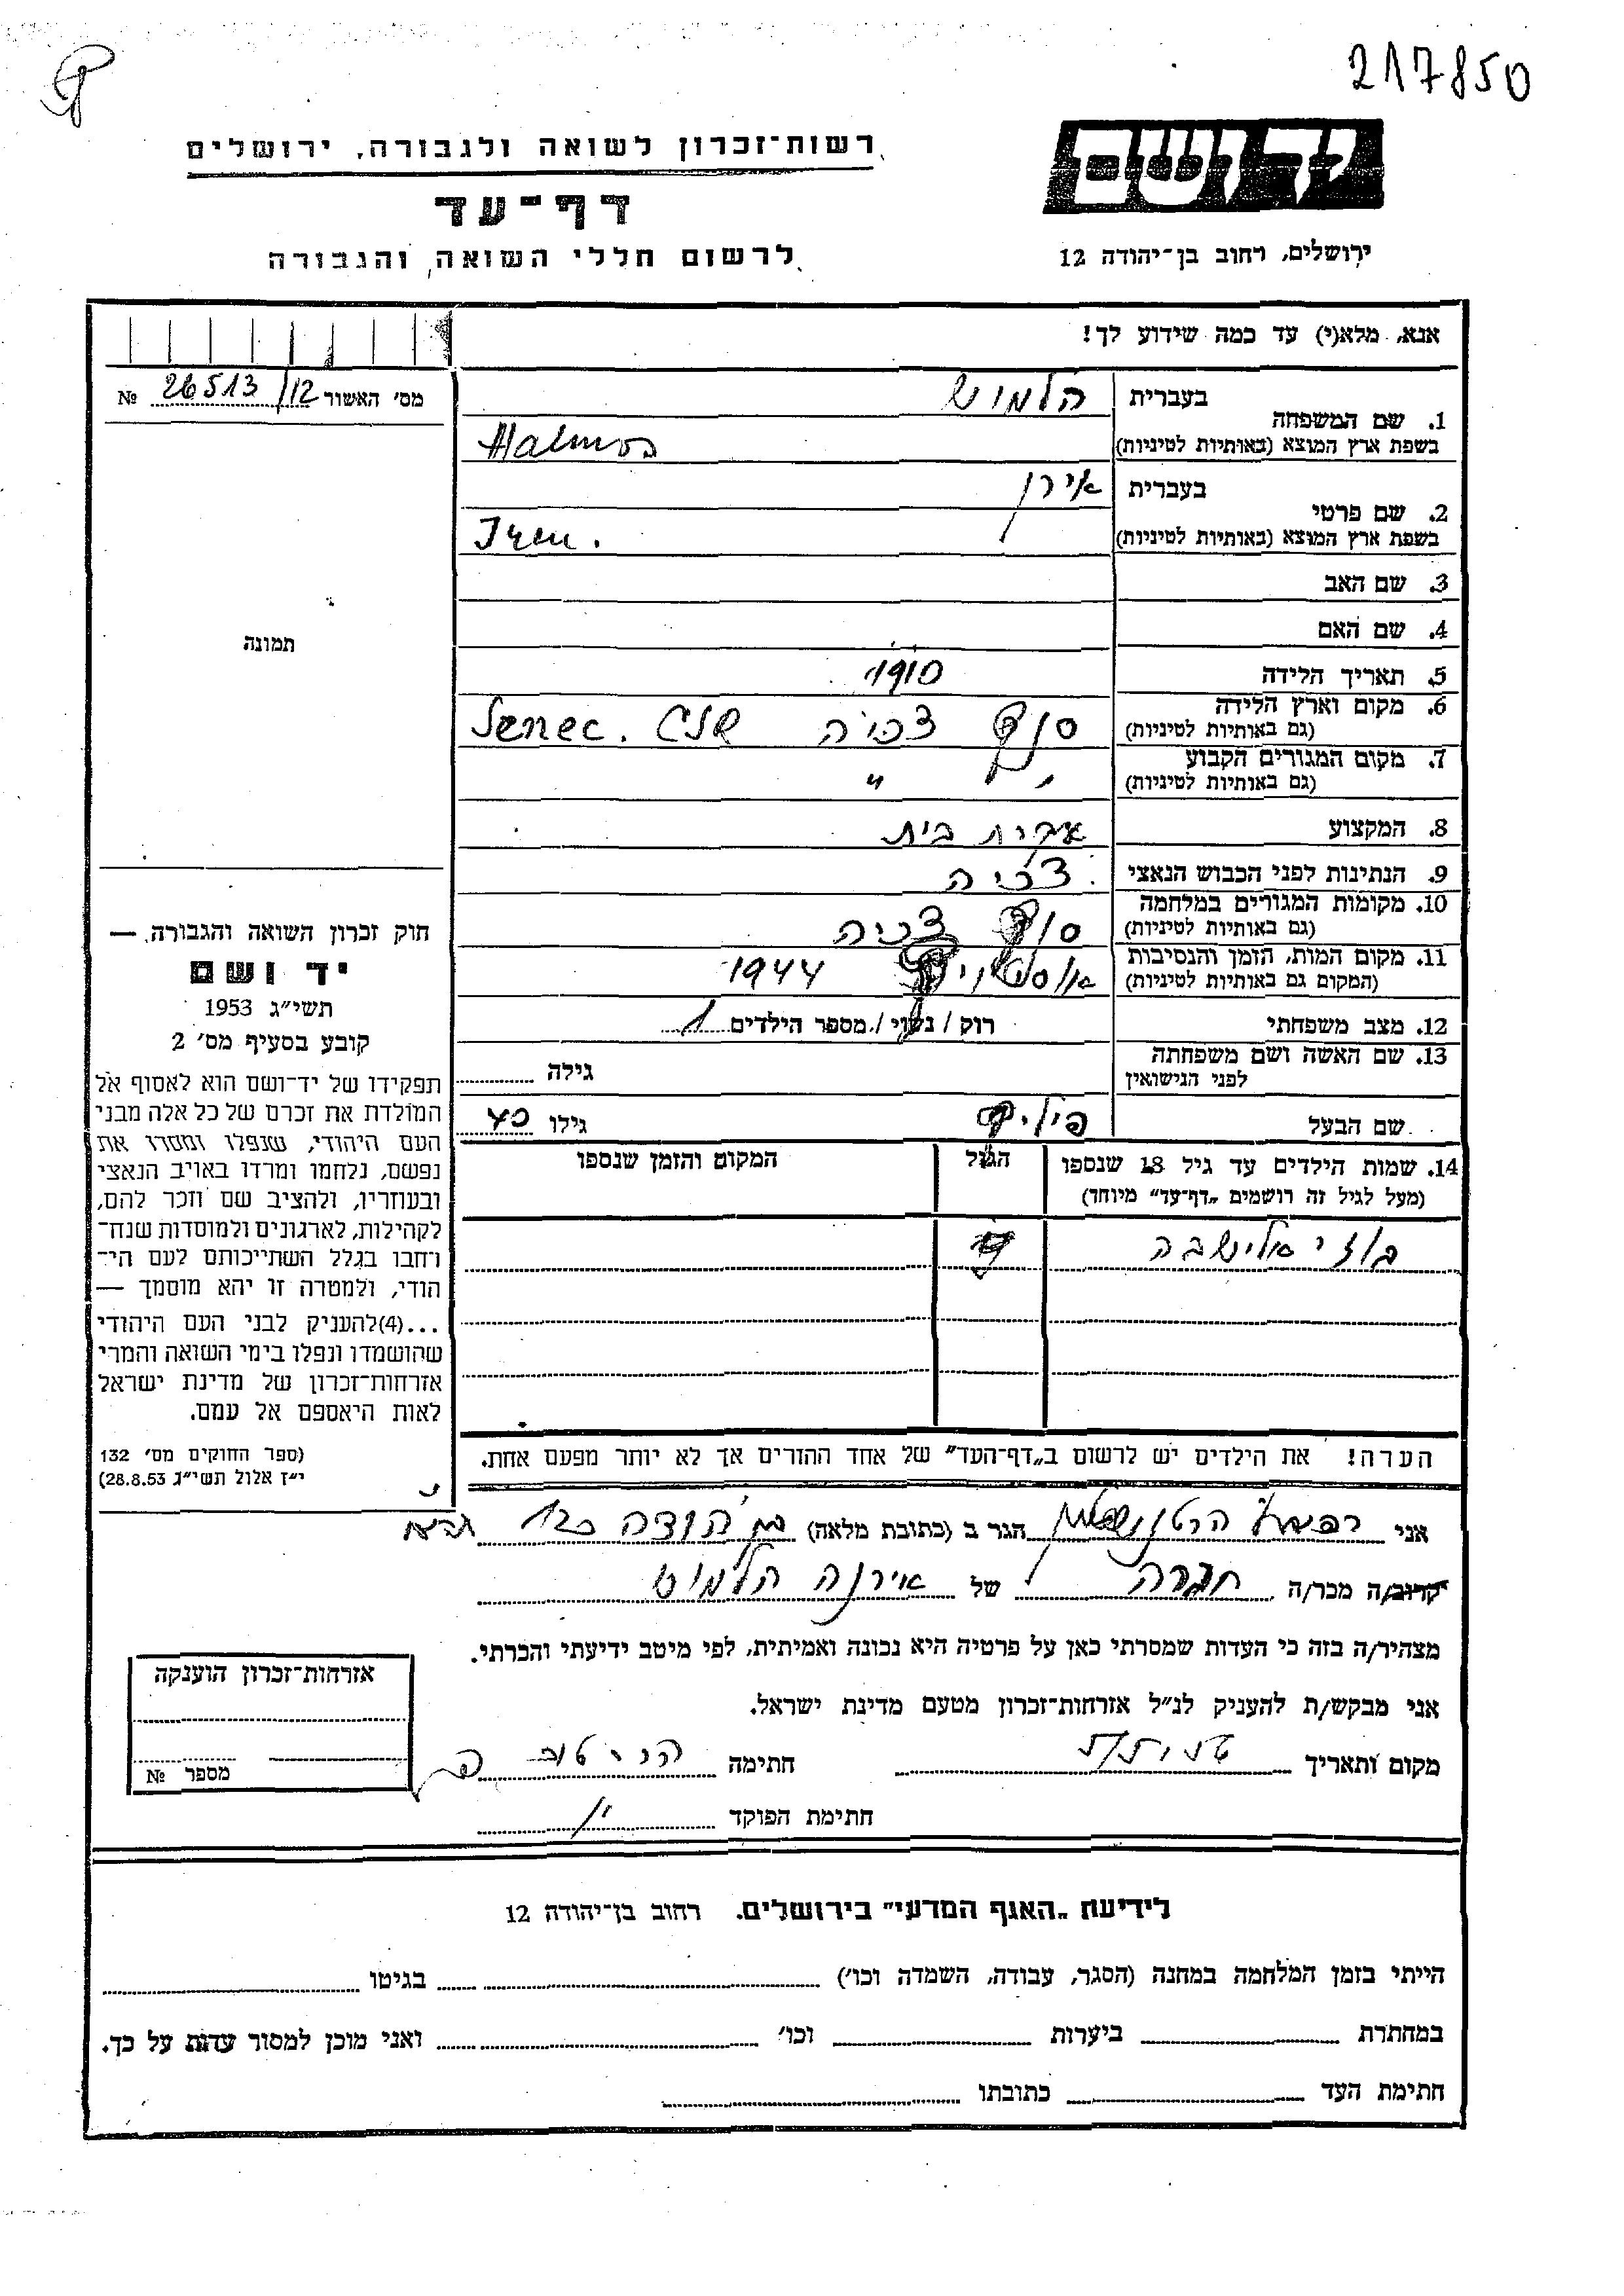 217850
רשות־זכרון לשואה ולגבורה, ירושלים
יד ושם
דף־עד
לרשום חללי השואה והגבורה
ירושלים, רחוב בן־יהודה 12
אנא, מלא(י) עד כמה שידוע לך!
מס׳ האשור 26513/12 №
תמונה
1. שם המשפחה בעברית הלמוש
בשפת ארץ המוצא (באותיות לטיניות) Halmos
2. שם פרטי בעברית אירן
בשפת ארץ המוצא (באותיות לטיניות) Iren.
3. שם האב
4. שם האם
5. תאריך הלידה 1910
6. מקום וארץ הלידה
(גם באותיות לטיניות) סנץ צ׳כיה Senec. ČSR
7. מקום המגורים הקבוע
(גם באותיות לטיניות) " "
8. המקצוע עקרת בית
9. הנתינות לפני הכבוש הנאצי צ׳כיה
10. מקומות המגורים במלחמה
(גם באותיות לטיניות) סנץ צ׳כיה
11. מקום המות, הזמן והנסיבות
(המקום גם באותיות לטיניות) אושויץ 1944
12. מצב משפחתי רוק / נשוי / מספר הילדים 1
13. שם האשה ושם משפחתה
לפני הנישואין גילה
שם הבעל פיליפ גילו 40
14. שמות הילדים עד גיל 18 שנספו הגיל המקום והזמן שנספו
(מעל לגיל זה רושמים „דף־עד״ מיוחד)
אלישבה
הערה! את הילדים יש לרשום ב„דף־העד״ של אחד ההורים אך לא יותר מפעם אחת.
חוק זכרון השואה והגבורה —
יד ושם
תשי״ג 1953
קובע בסעיף מס׳ 2
תפקידו של יד־ושם הוא לאסוף אל
המולדת את זכרם של כל אלה מבני
העם היהודי, שנפלו ומסרו את
נפשם, נלחמו ומרדו באויב הנאצי
ובעוזריו, ולהציב שם וזכר להם,
לקהילות, לארגונים ולמוסדות שנח־
רחבו בגלל השתייכותם לעם הי־
הודי, ולמטרה זו יהא מוסמך —
...(4)להעניק לבני העם היהודי
שהושמדו ונפלו בימי השואה והמרי
אזרחות־זכרון של מדינת ישראל
לאות היאספם אל עמם.
(ספר החוקים מס׳ 132
י״ז אלול תשי״ג 28.8.53)
אני הגר ב (כתובת מלאה) בן יהודה
קרוב/ה מכר/ה חברה של אירנה הלמוש
מצהיר/ה בזה כי העדות שמסרתי כאן על פרטיה היא נכונה ואמיתית, לפי מיטב ידיעתי והכרתי.
אני מבקש/ת להעניק לנ״ל אזרחות־זכרון מטעם מדינת ישראל.
מקום ותאריך חתימה
חתימת הפוקד
אזרחות־זכרון הוענקה
מספר №
לידיעת „האגף המדעי״ בירושלים. רחוב בן־יהודה 12
הייתי בזמן המלחמה במחנה (הסגר, עבודה, השמדה וכו׳) בגיטו
במחתרת ביערות וכו׳ ואני מוכן למסור עדות על כך.
חתימת העד כתובתו